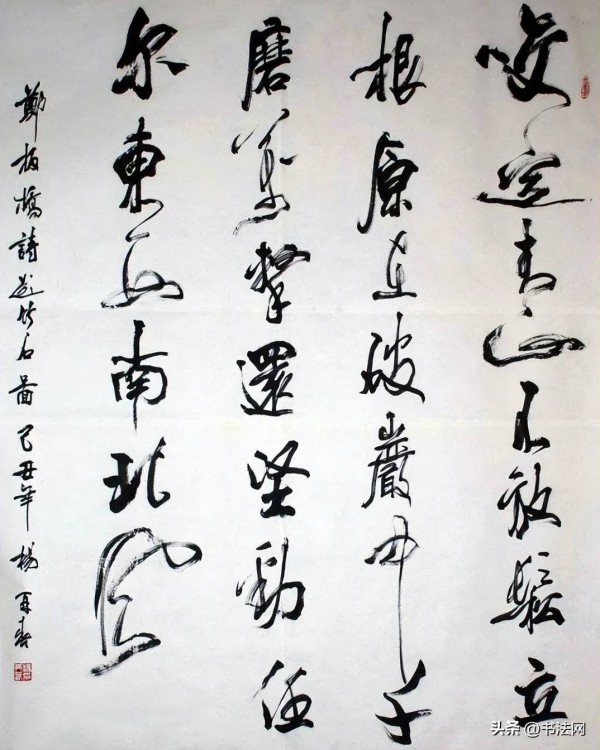 咬定青山不放鬆立
根原在破巖中千
磨萬擊還堅勁任
尔東西南北風
鄭板橋詩題竹石圖 己丑年 楊再春
头条 @书法网